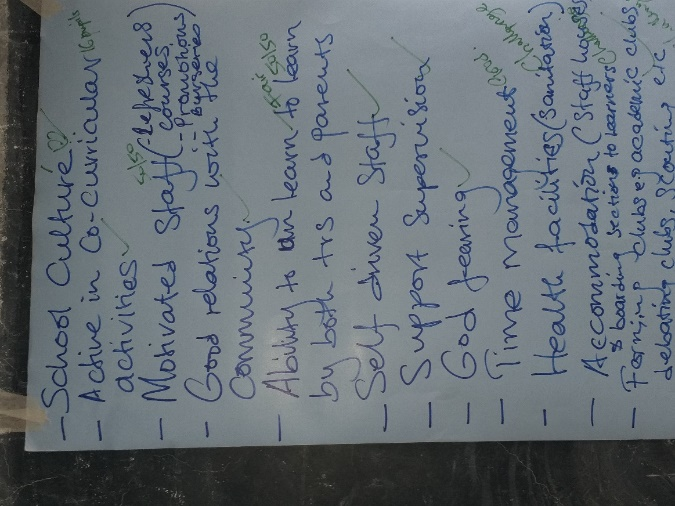 - School Culture
- Active in Co-curricular
activities
- Motivated Staff (refreshers
courses
- Promotions
- Good relations with the
Community
50/50
- Ability to learn to learn
50/50
by both trs and parents
- Self driven Staff
- Support Supervision
- God fearing
- Time management
Challenge
- Health facilities (Sanitation)
- Accommodation (Staff houses
& boarding sections to learners
clubs eg academic clubs,
debating clubs, scouting etc.